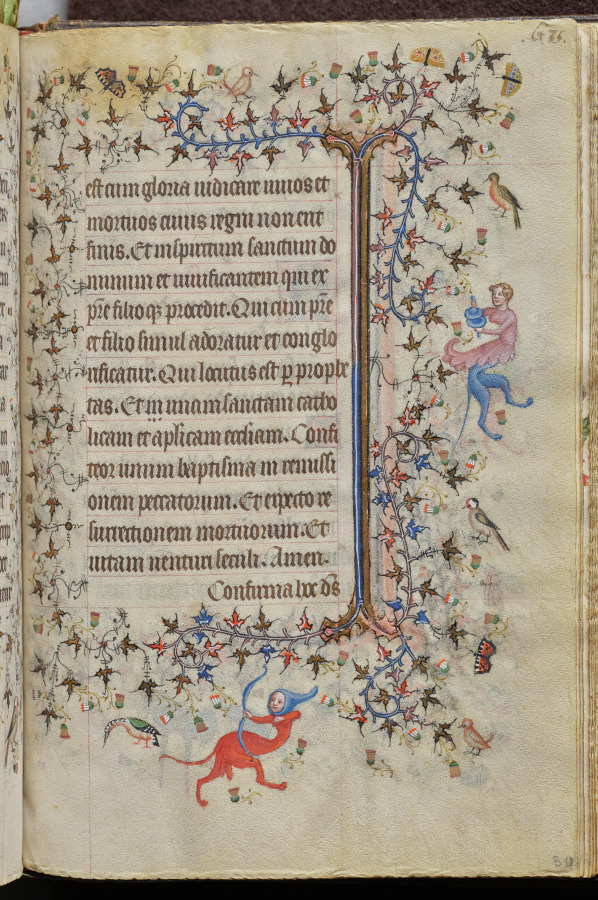 est cum gloria iudicare uiuos et
mortuos cuius regni non erit
finis. Et in spiritum sanctum do
minum et uiuificantem qui ex
pr̄e filio qꝫ procedit. Qui cum pr̄e
et filio simul adoratur et conglo
rificatur. Qui locutus est ꝑ prophe
tas. Et in unam sanctam catho
licam et apl̄icam eccl̄iam. Confi
teor unum baptisma in remissi
onem peccatorum. Et expecto re
surrectionem mortuorum. Et
uitam uenturi seculi. Amen.
Confirma hoc ds̄